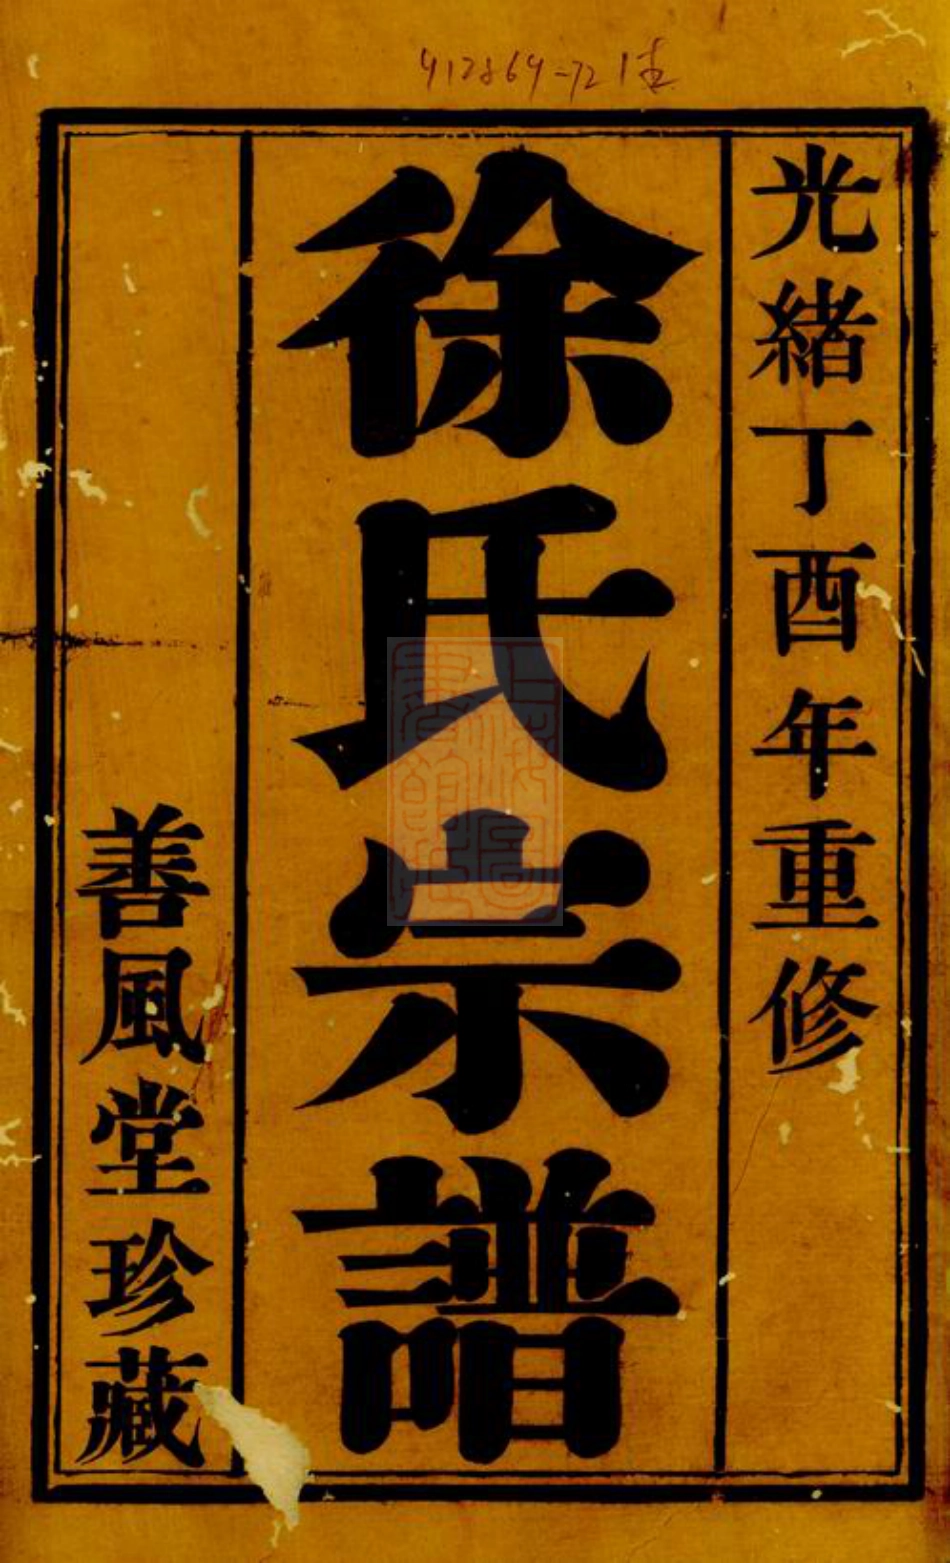 光緒丁酉年重修
徐氏宗譜
善風堂珍藏